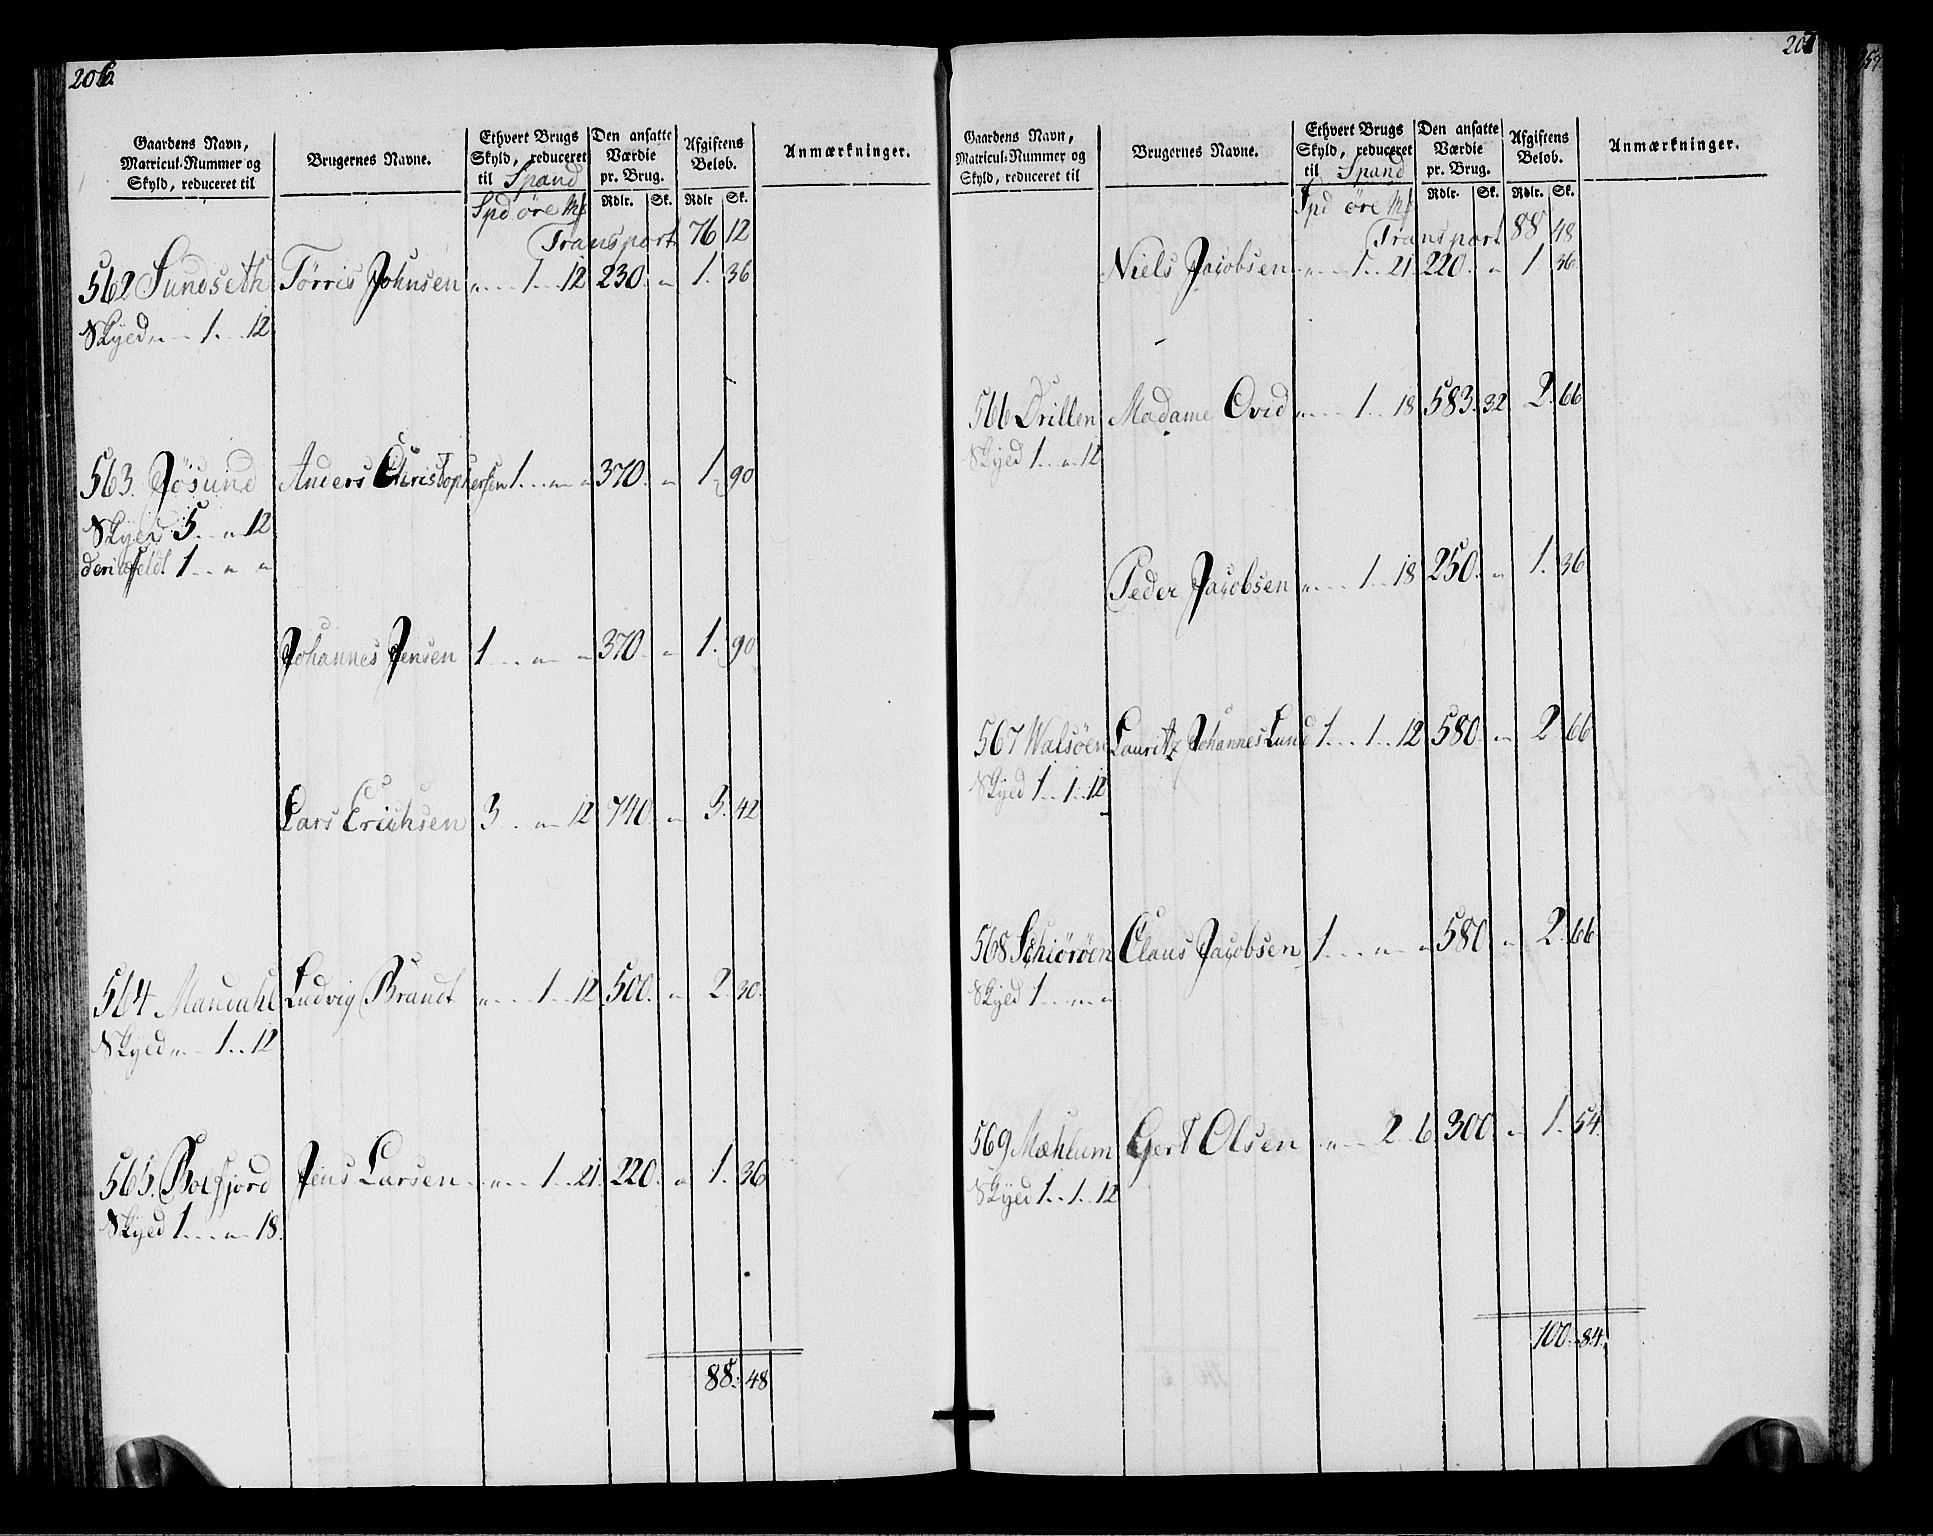 206.
Gaardens Navn, Matricul-Nummer og Skyld, reduceret til
Brugernes Navne.
Ethvert Brugs Skyld, reduceret til Spand
Den ansatte Værdie pr. Brug.
Afgiftens Beløb.
Anmærkninger.
Spd öre Mk
Rdlr. Sk. Rdlr Sk.
Transport 76 12
562 Sundseth Törris Johnsen „ 1 12 230. „ 1. 36
Skyld „ 1 12
563. Jösund Anders Christophersen 1 „ „ 370. „ 1. 90
Skyld 5 „ 12
deriafeldt 1 „ „
Johannes Jensen 1 „ „ 370. „ 1. 90
Lars Erichsen 3 „ 12 740. „ 3. 42
564 Mandahl Ludvig Brandt „ 1 12 500. „ 2. 30.
Skyld „ 1 12
565. Bolfjord Jens Larsen „ 1 21. 220. „ 1. 36
Skyld 1 „ 18.
88. 48
207
Gaardens Navn, Matricul-Nummer og Skyld, reduceret til
Brugernes Navne.
Ethvert Brugs Skyld, reduceret til Spand
Den ansatte Værdie pr. Brug.
Afgiftens Beløb.
Anmærkninger.
Spd öre Mk
Rdlr. Sk. Rdlr. Sk.
Transport 88 48
Niels Jacobsen „ 1 21 220. „ 1 36
566 Drillen Madame Ovid „ 1 18 583. 32 2. 66
Skyld 1 „ 12
Peder Jacobsen „ 1 18 250. „ 1. 36
567 Walsöen Lauritz Johannes Lund 1 1 12 580. „ 2. 66
Skyld 1 1 12
568 Schiöröen Claus Jacobsen 1 „ „ 580. „ 2. 66
Skyld 1 „ „
569 Mæhlum Gert Olsen „ 2 6 300. „ 1. 54.
Skyld 1 1 12
100. 84.